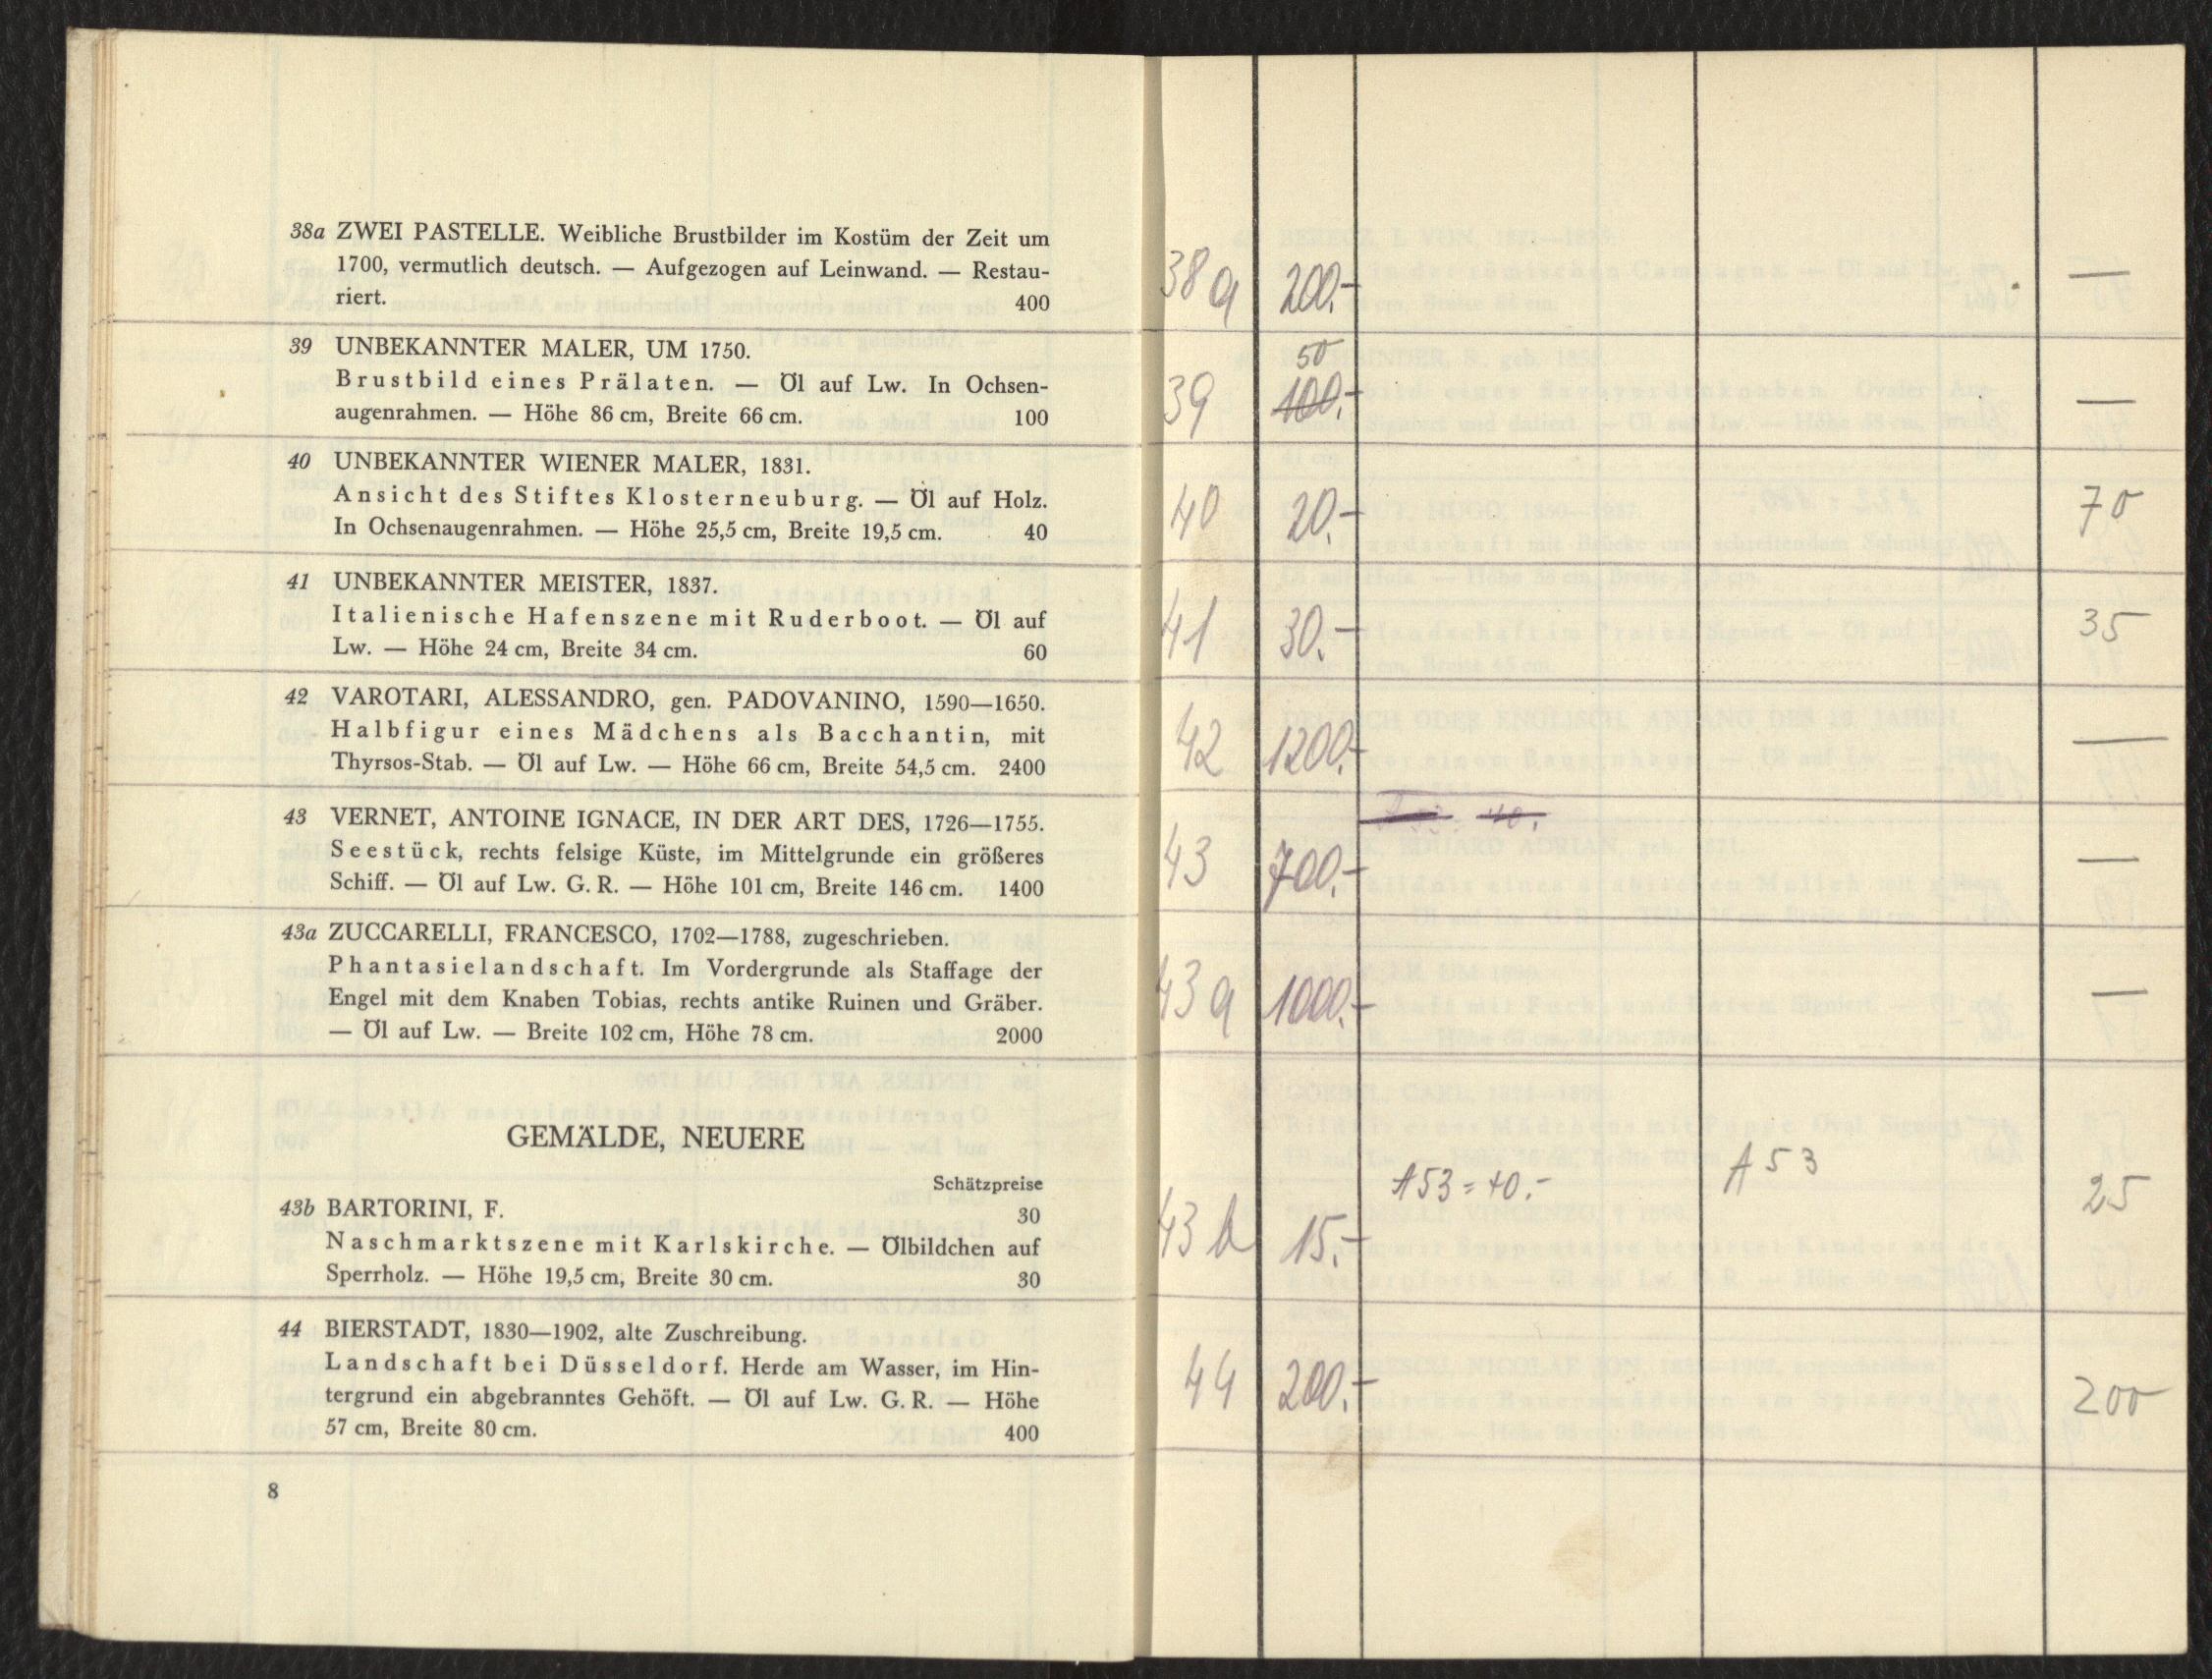 38a ZWEI PASTELLE. Weibliche Brustbilder im Kostüm der Zeit um
1700, vermutlich deutsch. — Aufgezogen auf Leinwand. — Restau-
riert. 400
39 UNBEKANNTER MALER, UM 1750.
Brustbild eines Prälaten. — Öl auf Lw. In Ochsen-
augenrahmen. — Höhe 86 cm, Breite 66 cm. 100
40 UNBEKANNTER WIENER MALER, 1831.
Ansicht des Stiftes Klosterneuburg. — Öl auf Holz.
In Ochsenaugenrahmen. — Höhe 25,5 cm, Breite 19,5 cm. 40
41 UNBEKANNTER MEISTER, 1837.
Italienische Hafenszene mit Ruderboot. — Öl auf
Lw. — Höhe 24 cm, Breite 34 cm. 60
42 VAROTARI, ALESSANDRO, gen. PADOVANINO, 1590—1650.
Halbfigur eines Mädchens als Bacchantin, mit
Thyrsos-Stab. — Öl auf Lw. — Höhe 66 cm, Breite 54,5 cm. 2400
43 VERNET, ANTOINE IGNACE, IN DER ART DES, 1726—1755.
Seestück, rechts felsige Küste, im Mittelgrunde ein größeres
Schiff. — Öl auf Lw. G. R. — Höhe 101 cm, Breite 146 cm. 1400
43a ZUCCARELLI, FRANCESCO, 1702—1788, zugeschrieben.
Phantasielandschaft. Im Vordergrunde als Staffage der
Engel mit dem Knaben Tobias, rechts antike Ruinen und Gräber.
— Öl auf Lw. — Breite 102 cm, Höhe 78 cm. 2000
GEMÄLDE, NEUERE
Schätzpreise
43b BARTORINI, F. 30
Naschmarktszene mit Karlskirche. — Ölbildchen auf
Sperrholz. — Höhe 19,5 cm, Breite 30 cm. 30
44 BIERSTADT, 1830—1902, alte Zuschreibung.
Landschaft bei Düsseldorf. Herde am Wasser, im Hin-
tergrund ein abgebranntes Gehöft. — Öl auf Lw. G. R. — Höhe
57 cm, Breite 80 cm. 400
8
38a 200.- —
50
39 100.- —
40 20.- 70
41 30.- 35
42 1200.- —
43 700.- —
43a 1000.- —
A53 = 40.- A53
43b 15.- 25
44 200.- 200